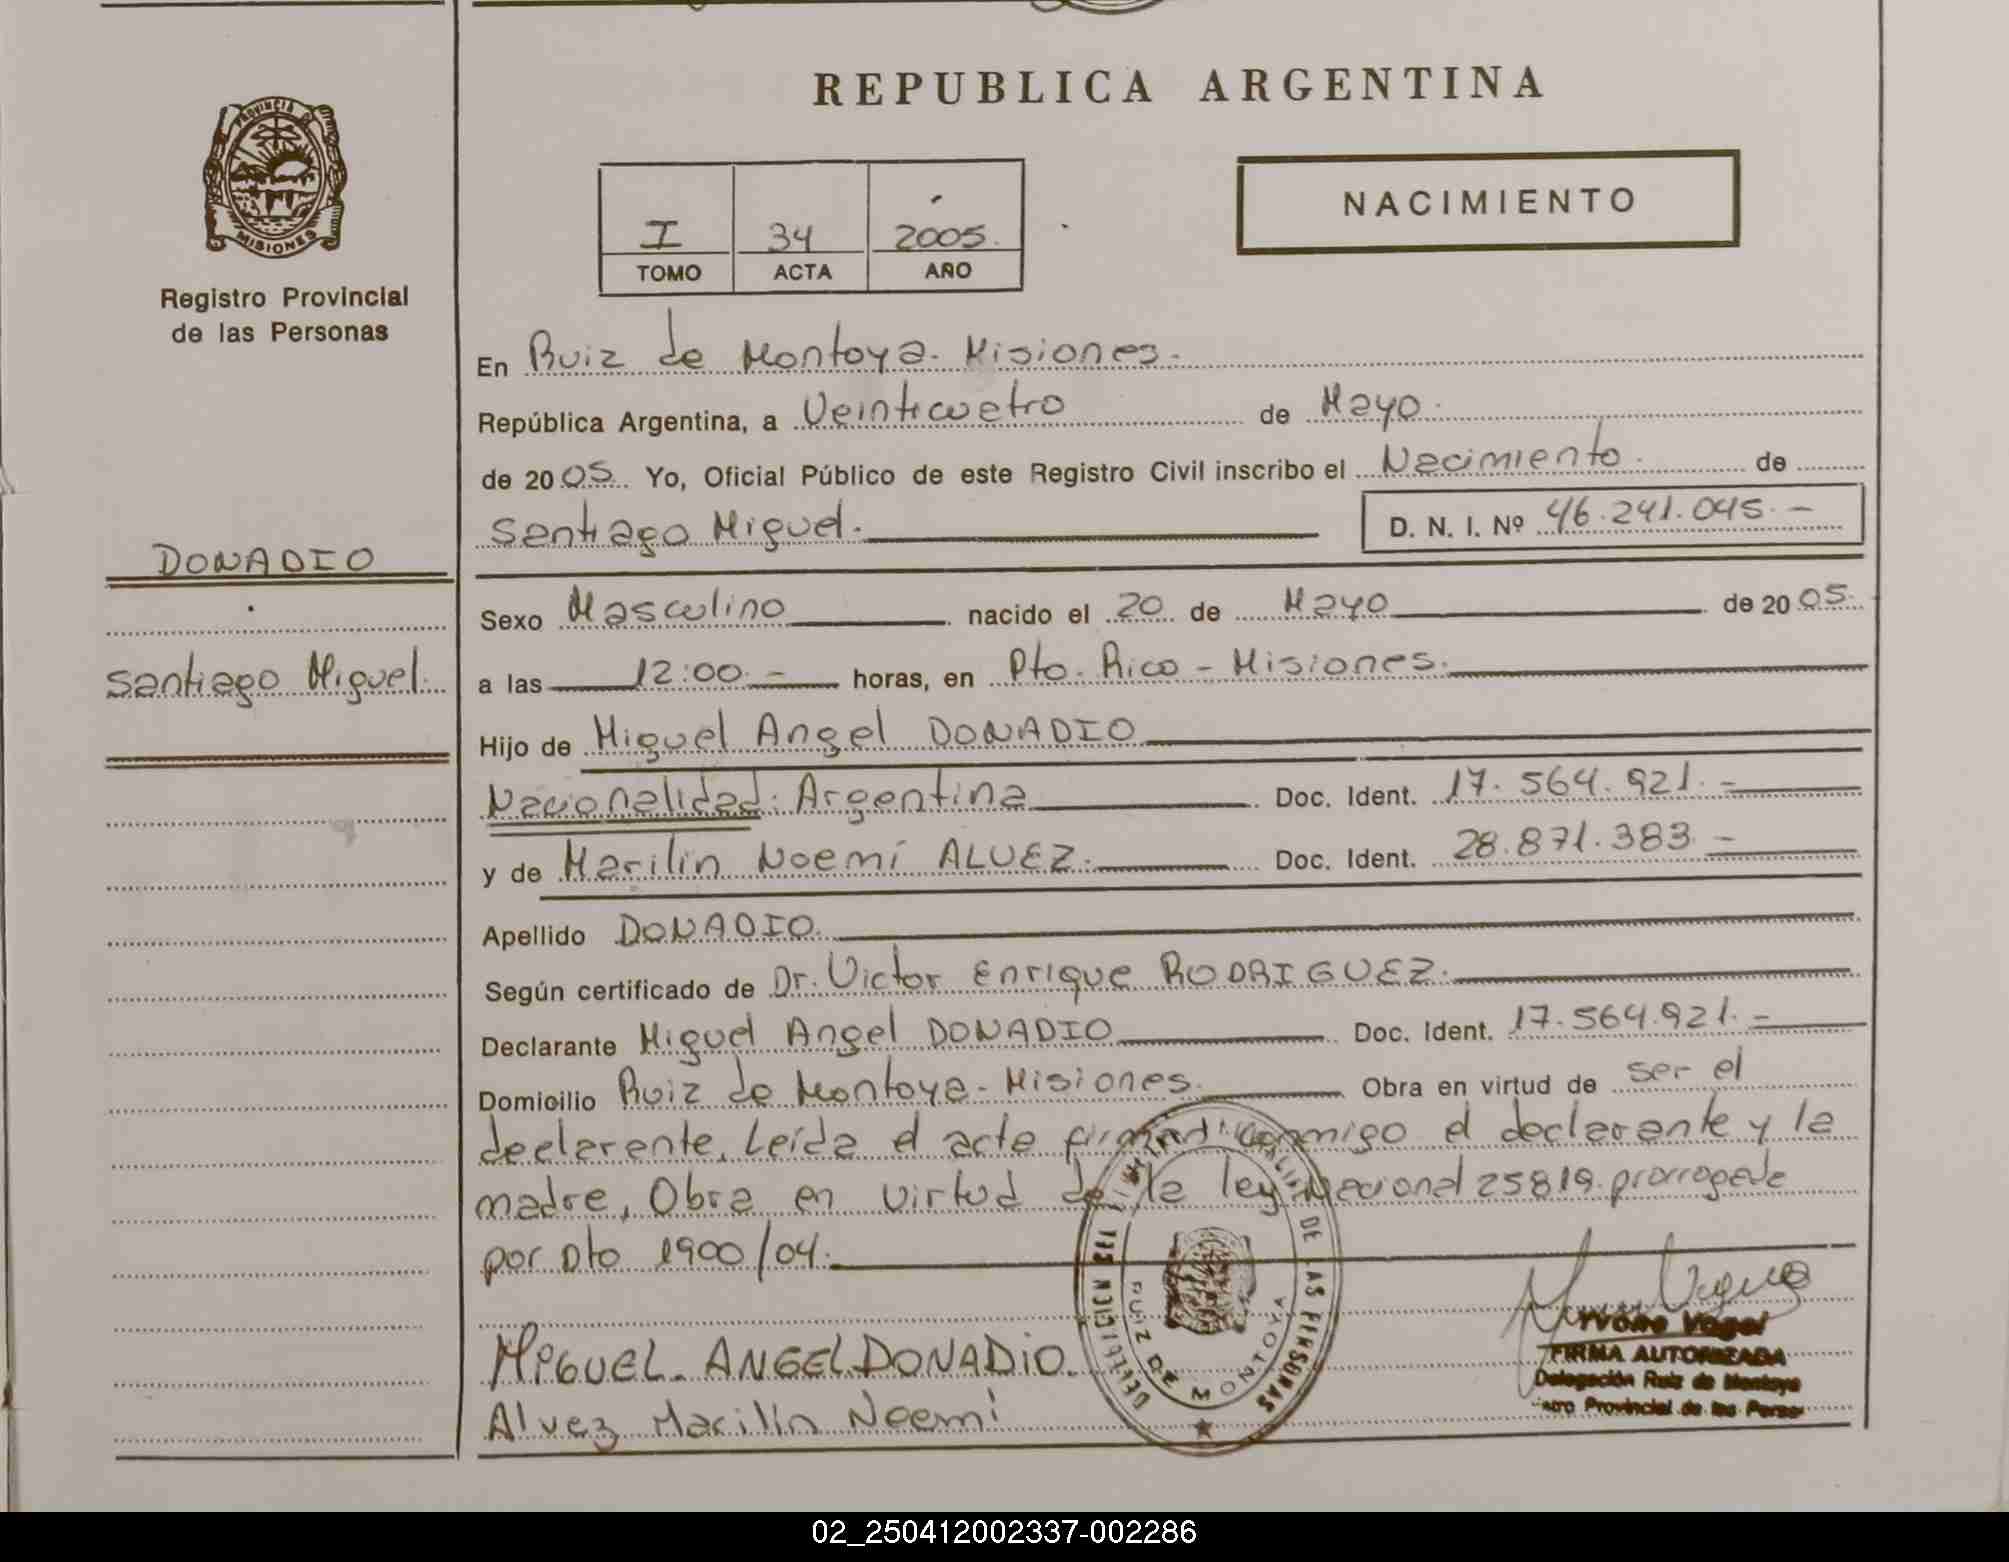 PROVINCIA D
MISIONES
Registro Provincial
de las Personas
DONADIO
Santiago Miguel.
REPUBLICA ARGENTINA
I 34 2005.
TOMO ACTA AÑO
NACIMIENTO
En Ruiz de Montoya. Misiones.
República Argentina, a Veinticuatro de Mayo.
de 2005. Yo, Oficial Público de este Registro Civil inscribo el Nacimiento. de
Santiago Miguel. D. N. I. Nº 46.241.045.-
Sexo Masculino nacido el 20 de Mayo de 2005.
a las 12:00.- horas, en Pto. Rico - Misiones.
Hijo de Miguel Angel DONADIO
Nacionalidad: Argentina Doc. Ident. 17.564.921.-
y de Marilin Noemí ALVEZ. Doc. Ident. 28.871.383.-
Apellido DONADIO.
Según certificado de Dr. Victor Enrique RODRIGUEZ.
Declarante Miguel Angel DONADIO Doc. Ident. 17.564.921.-
Domicilio Ruiz de Montoya - Misiones. Obra en virtud de ser el
declarante. Leída el acta firman conmigo el declarante y la
madre, Obra en virtud de la ley Nacional 25819 prorrogada
por Dto 1900/04.
MIGUEL. ANGEL DONADIO.
Alvez Marilin Noemí
DE LAS PERSONAS
RUIZ DE MONTOYA
Ivone Vogel
FIRMA AUTORIZADA
Delegación Ruiz de Montoya
Provincial de las
02_250412002337-002286